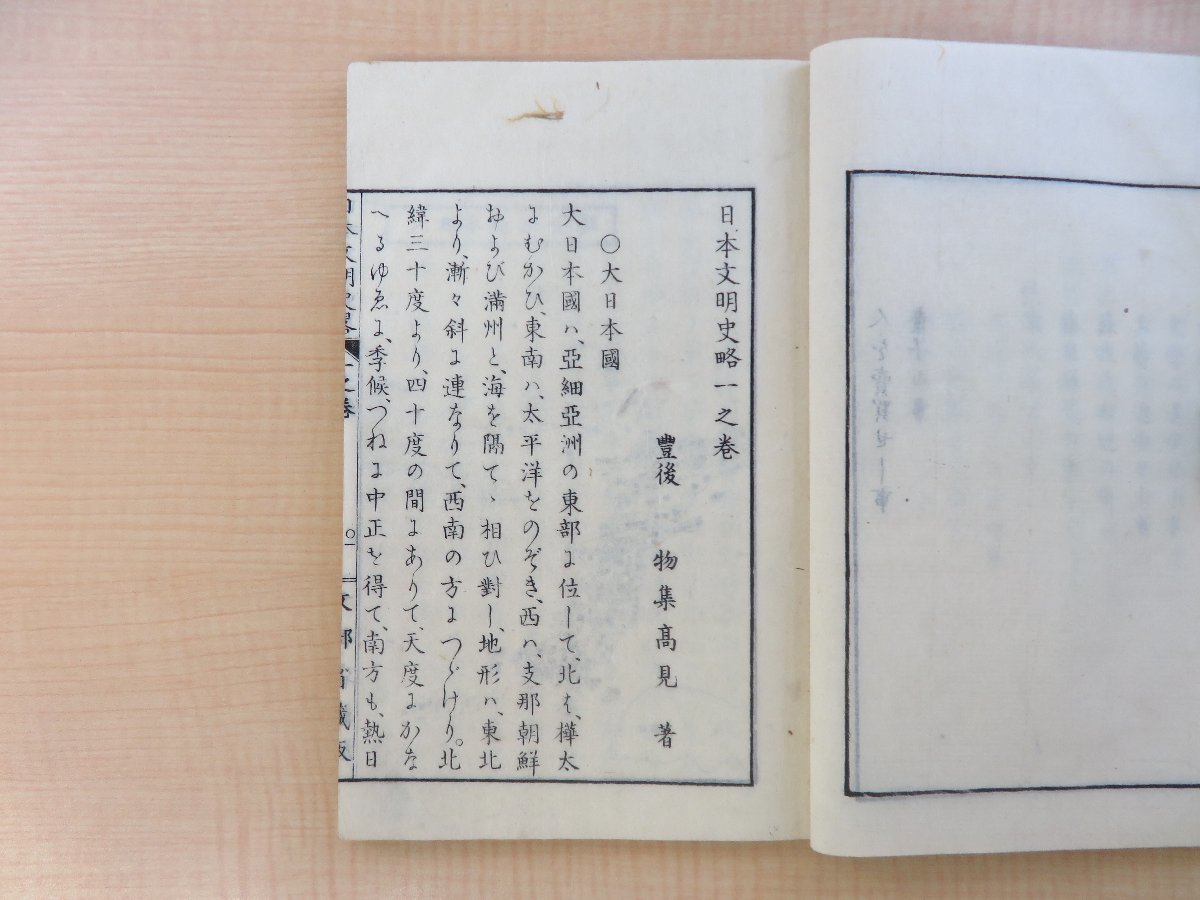 日本文明史略一之巻
豐後 物集高見 著
〇大日本國
大日本國ハ、亞細亞洲の東部に位して、北は、樺太
にむかひ、東南ハ、太平洋をのぞき、西ハ、支那朝鮮
および滿州と、海を隔てゝ相ひ對し、地形ハ、東北
より、漸々斜に連なりて、西南の方につゞけり。北
緯三十度より、四十度の間にありて、天度にかな
へるゆゑに、季候、つねに中正を得て、南方も、熱日
日本文明史略 一之巻 〇一 文部省藏版